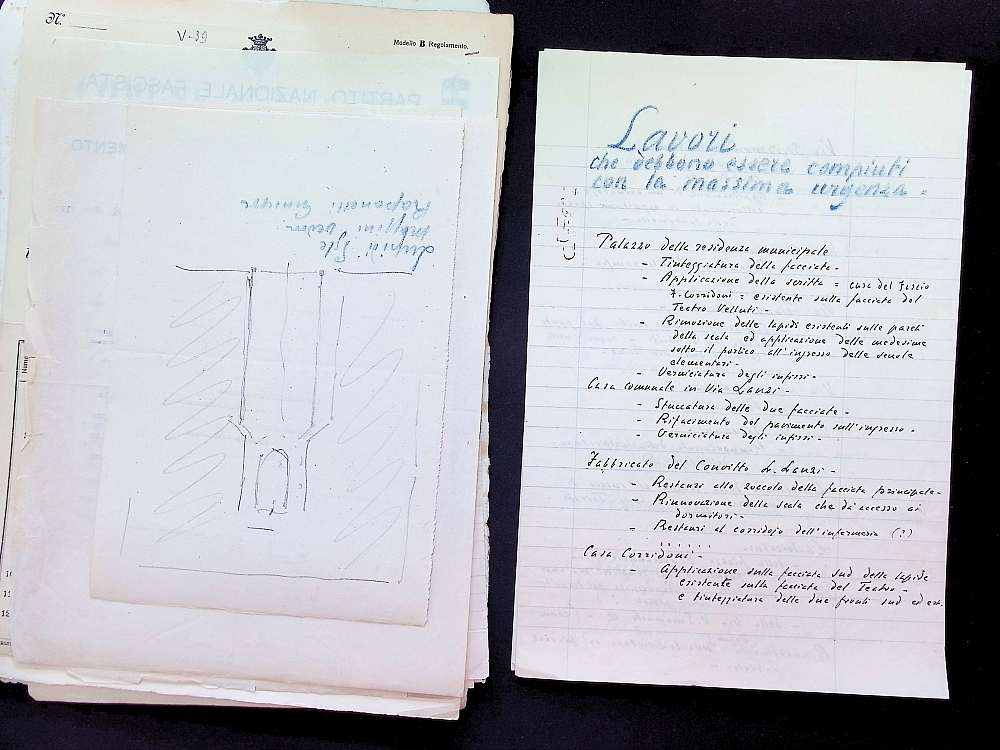 N.º
V-39
Modello B Regolamento.
PARTITO NAZIONALE FASCISTA
Lavori
che debbono essere compiuti
con la massima urgenza =
Palazzo della residenza municipale
- Tinteggiatura della facciata -
- Applicazione della scritta = casa del fascio
F. Corridoni = esistente sulla facciata del
Teatro Velluti -
- Rimozione delle lapidi esistenti sulle pareti
della scala ed applicazione delle medesime
sotto il portico all'ingresso delle scuole
elementari -
- Verniciatura degli infissi -
Casa comunale in Via Lanzi -
- Stuccatura delle due facciate -
- Rifacimento del pavimento sull'ingresso -
- Verniciatura degli infissi -
Fabbricato del Convitto L. Lanzi -
- Restauri allo zoccolo della facciata principale -
- Rinnovazione della scala che dà accesso ai
dormitori -
= Restauri al corridojo dell'infermeria (?)
Casa Corridoni -
- Applicazione sulla facciata sud della lapide
esistente sulla facciata del Teatro -
e tinteggiatura delle due fronti sud ed est.